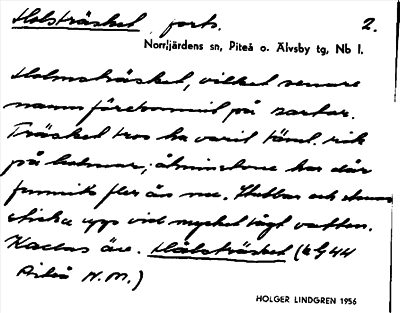 Holsträsket, forts. 2.
Norrfjärdens sn, Piteå o. Älvsby tg, Nb l.
Holmträsket, vilket senare
namn förekommit på kartor.
Träsket tros ha varit täml. rik
på holmar; åtminstone har där
funnits fler än nu. Stubbar och stenar
sticka upp vid mycket lågt vatten.
Kallas äv. Hålsträsket (k G44
Piteå N.M.)
HOLGER LINDGREN 1956